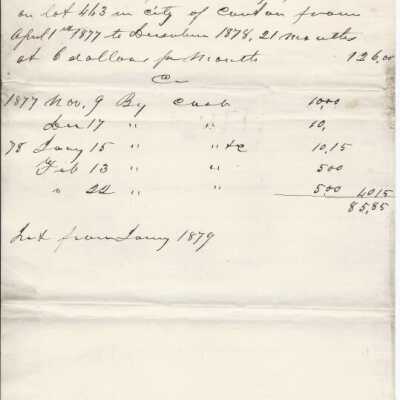 on lot 463 in city of Canton from
April 1st 1877 to December 1878, 21 months
at 6 dollars per Month 126,00
Cr
1877 Nov. 9 By Cash 10,00
Dec 17 " " 10,
78 Jany 15 " " &c 10,15
Feb 13 " " 5,00
" 22 " " 5,00 40,15
85,85
Int from Jany 1879